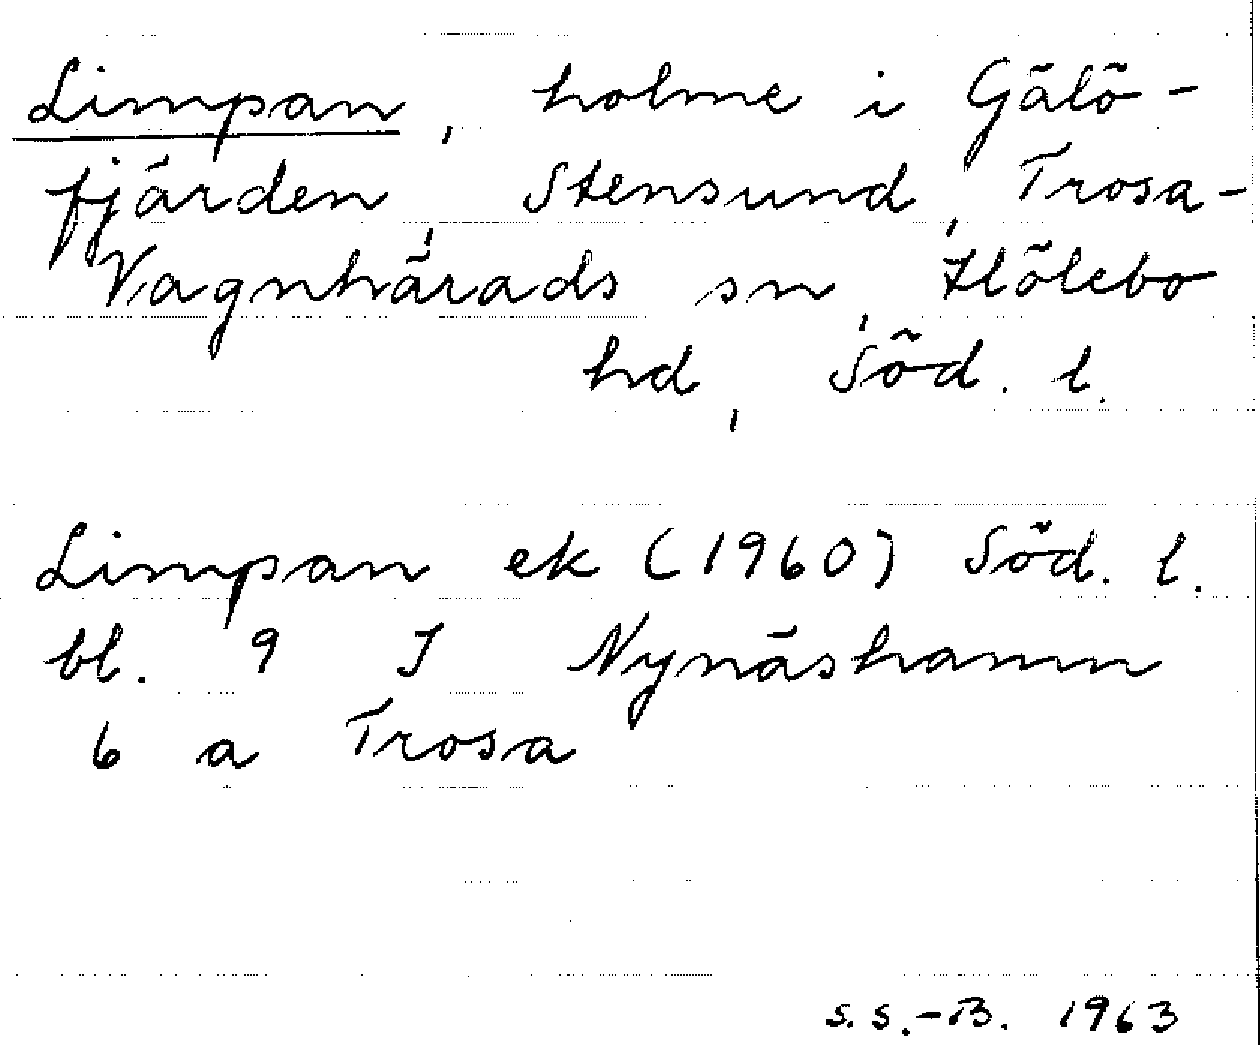 Limpan, holme i Gälö-
fjärden, Stensund, Trosa-
Vagnhärads sn, Hölebo
hd, Söd. l.
Limpan ek (1960) Söd. l.
bl. 9 I Nynäshamn
6 a Trosa
S. S.-B. 1963